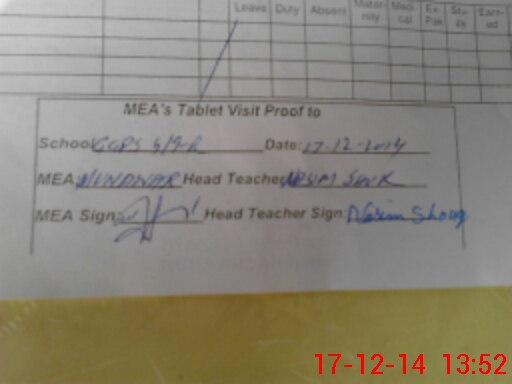 Leave Duty Absent Mater-nity Medi-cal Ex-Pak Stu-dy Earn-ed
MEA's Tablet Visit Proof to
School: GGPS 6/9-R Date: 17-12-2014
MEA: Head Teacher:
MEA Sign: Head Teacher Sign: Nasim Shouq
17-12-14 13:52